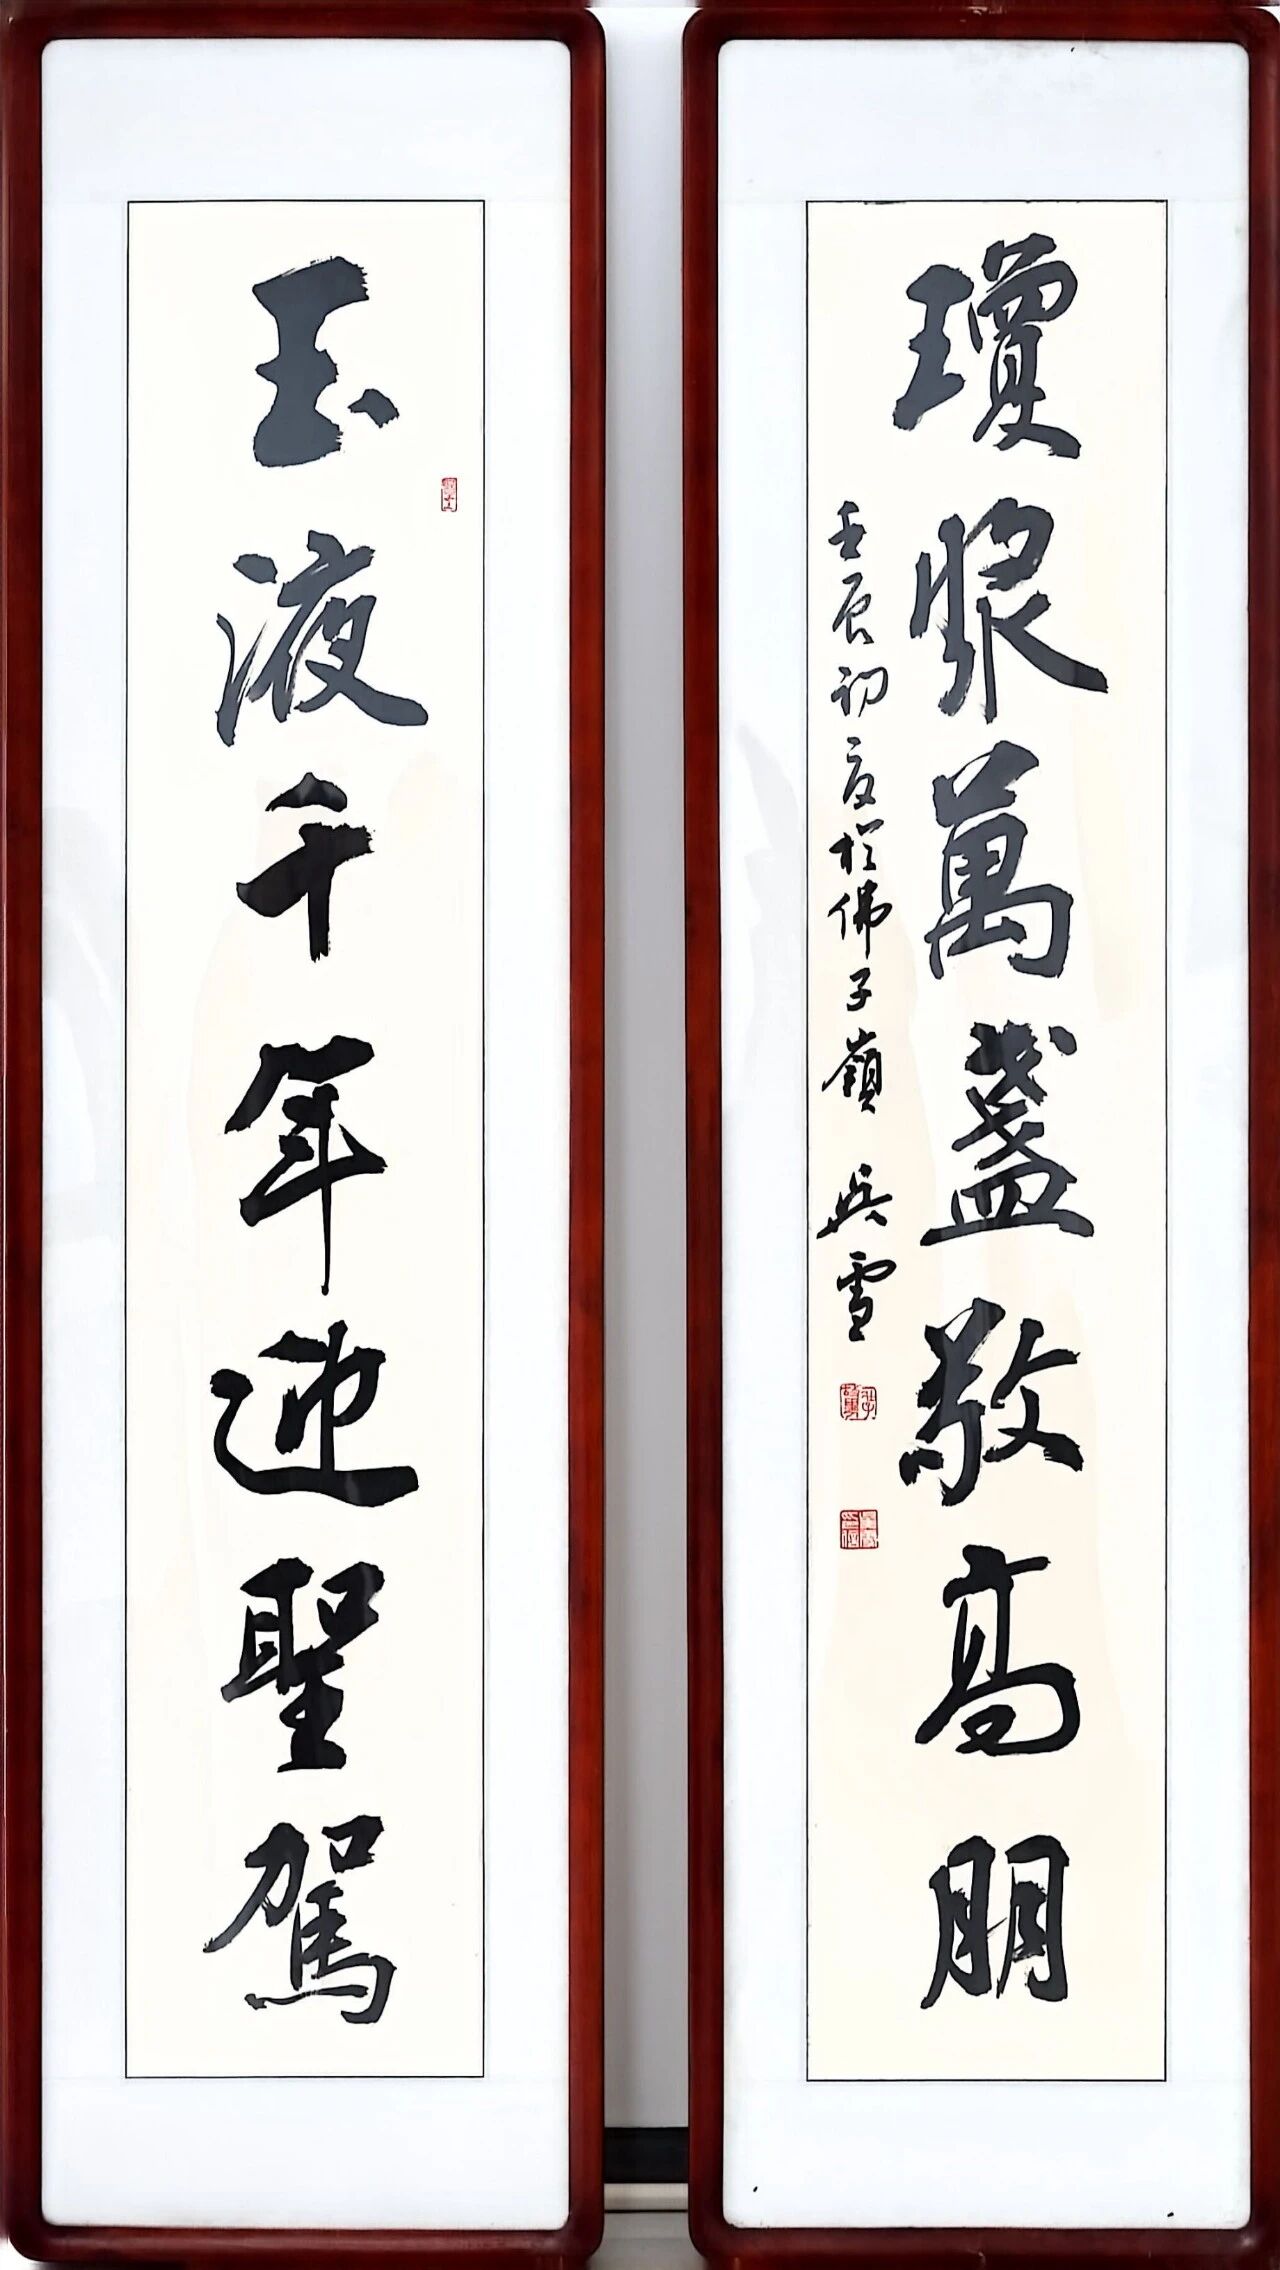 瓊漿萬盞敬高朋
壬辰初夏於佛子嶺 吳雪
玉液千年迎聖駕